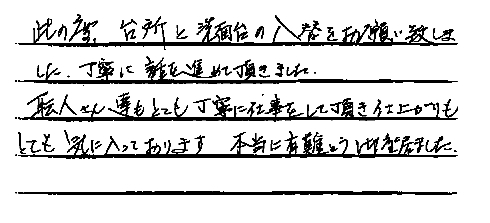 此の度、台所と洗面台の入替をお願い致しま
した。丁寧に話を進めて頂きました。
職人さん達もとても丁寧に仕事をして頂き仕上がりも
とても気に入っております 本当に有難とうございました。